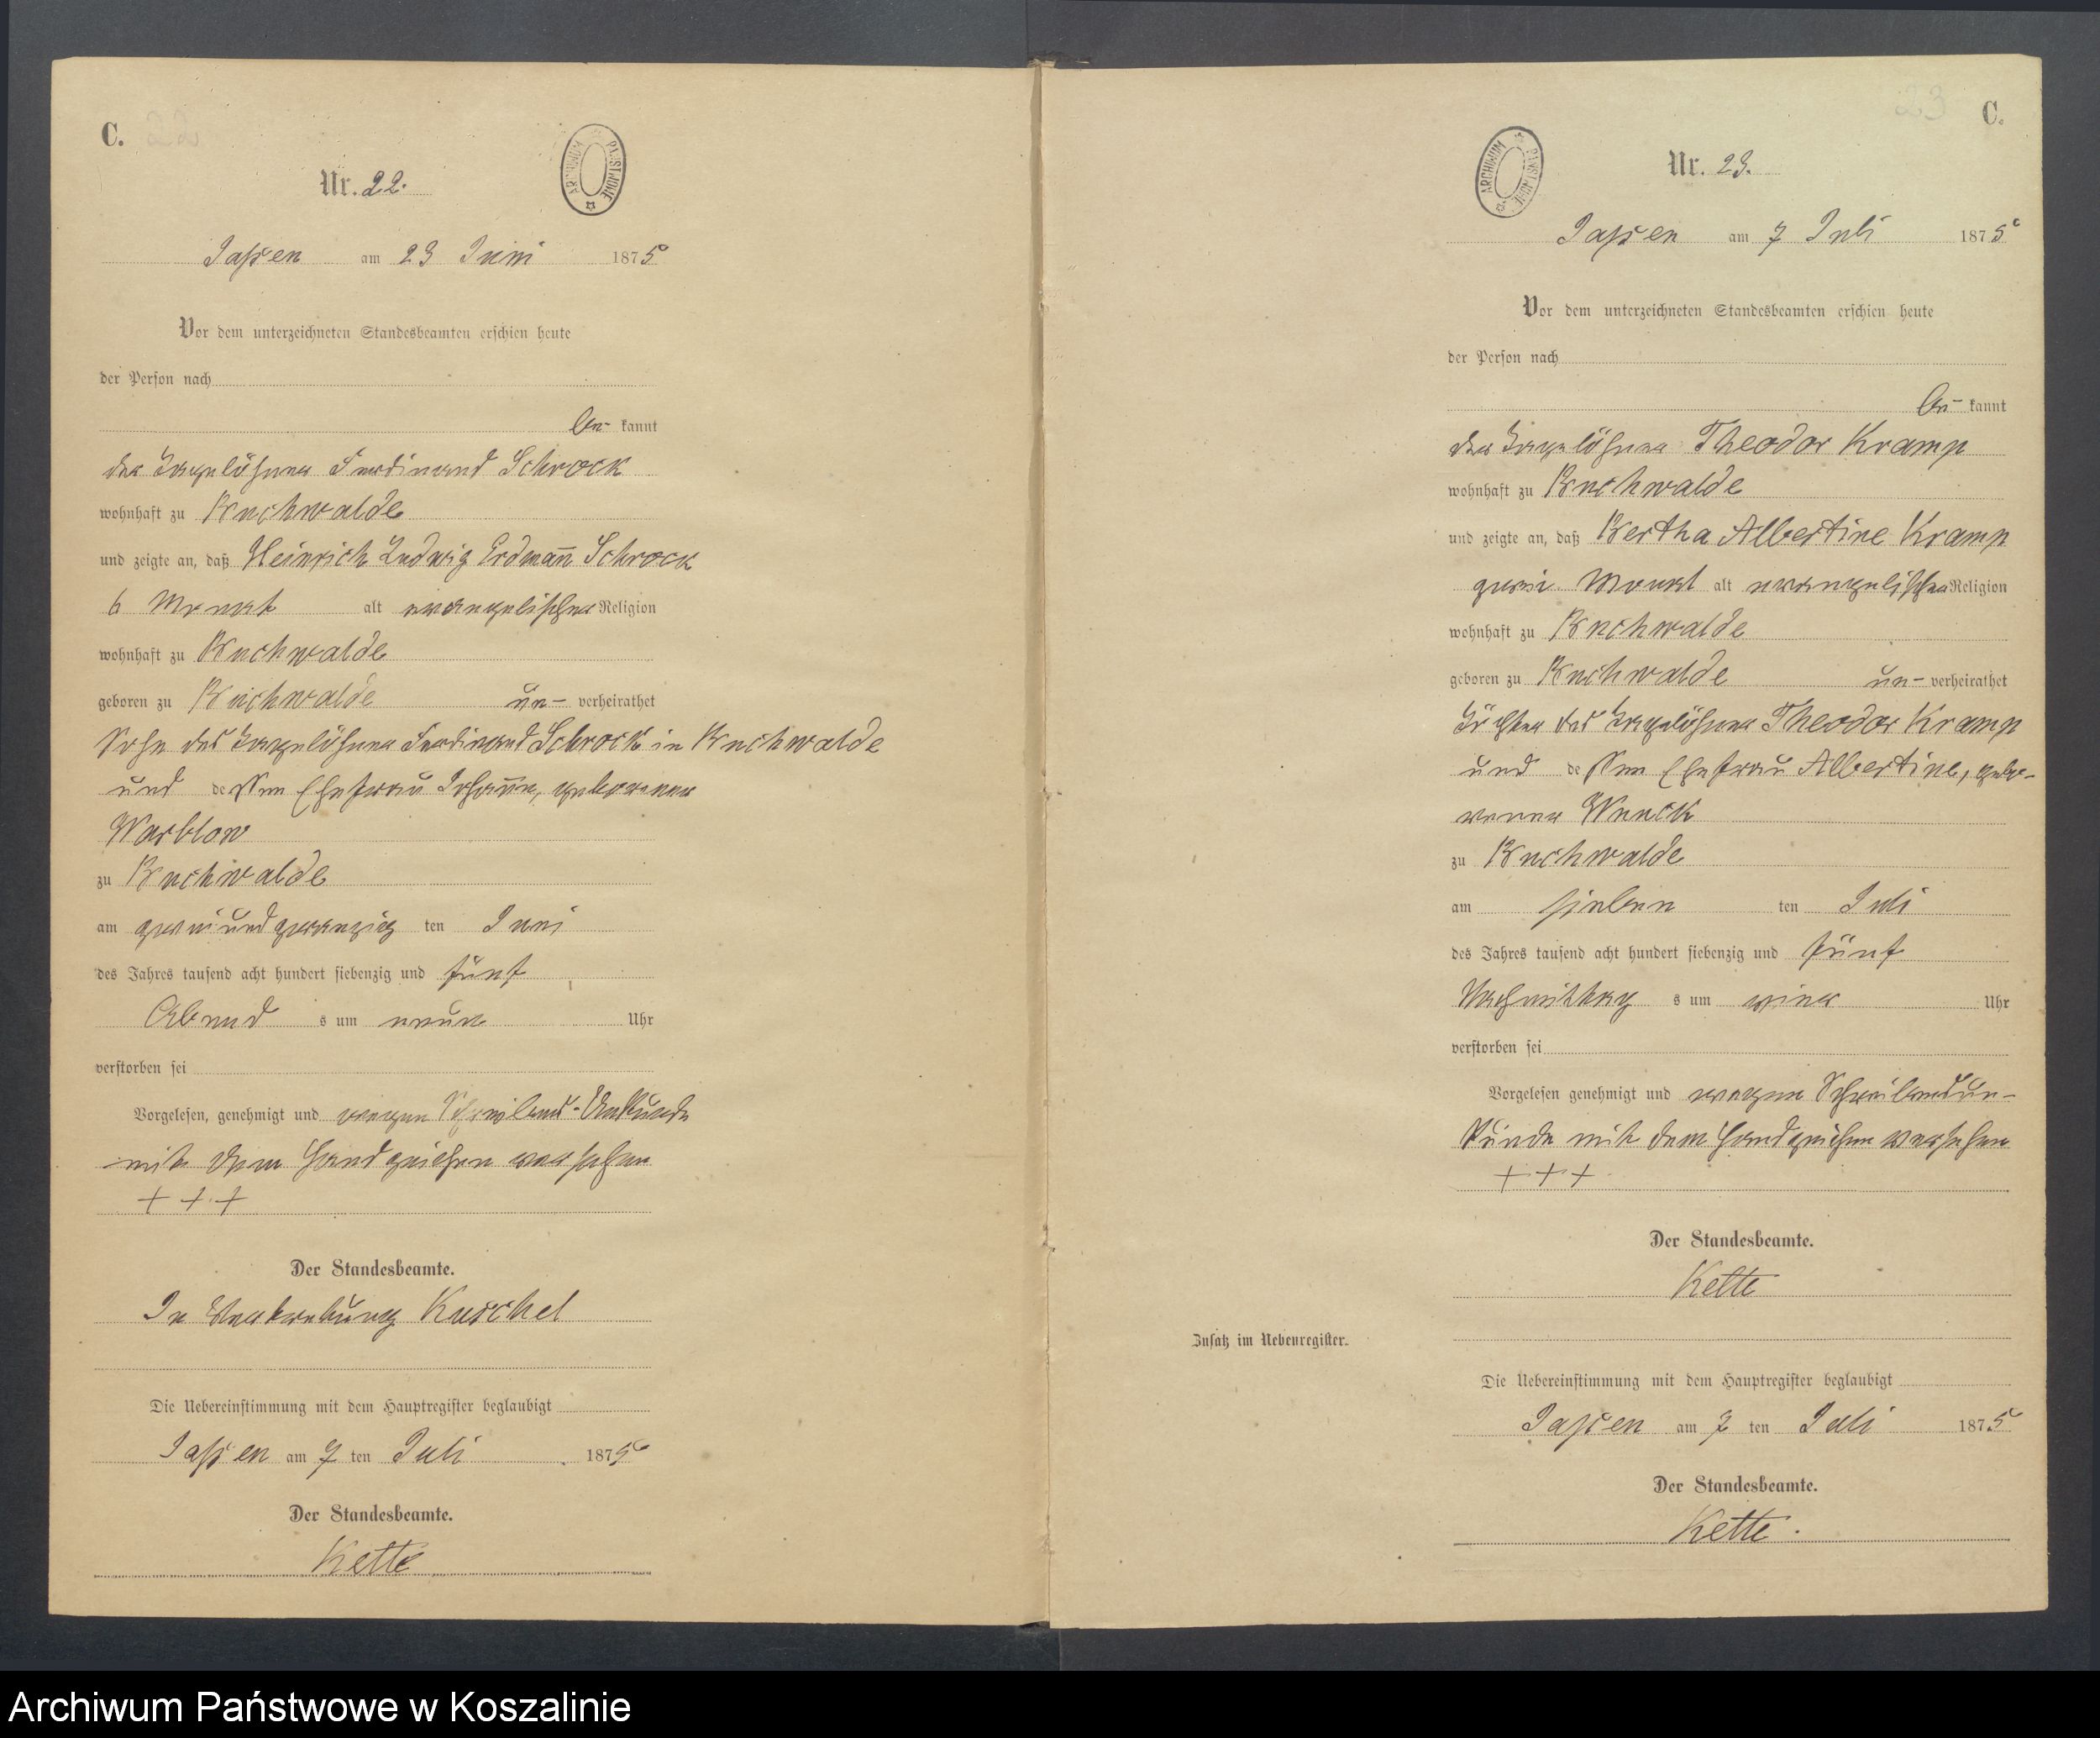 C. 22
ARCHIWUM PAŃSTWOWE
Nr. 22.
Jassen am 23 Juni 1875
Vor dem unterzeichneten Standesbeamten erschien heute
der Person nach
be- kannt
der Tagelöhner Ferdinand Schrock
wohnhaft zu Buchwalde
und zeigte an, daß Heinrich Ludwig Erdmann Schrock
6 Monat alt evangelischer Religion
wohnhaft zu Buchwalde
geboren zu Buchwalde un- verheirathet
Sohn des Tagelöhner Ferdinand Schrock in Buchwalde
und dessen Ehefrau Johanne, geborener
Warblow
zu Buchwalde
am zweiundzwanzig ten Juni
des Jahres tausend acht hundert siebenzig und fünf
Abend s um neun Uhr
verstorben sei
Vorgelesen, genehmigt und wegen Schreibens-Unkunde
mit dem Handzeichen versehen
+ + +
Der Standesbeamte.
In Vertretung Kuschel
Die Uebereinstimmung mit dem Hauptregister beglaubigt
Jassen am 7 ten Juli 1875
Der Standesbeamte.
Kette
23 C.
ARCHIWUM PAŃSTWOWE
Nr. 23.
Jassen am 7 Juli 1875
Vor dem unterzeichneten Standesbeamten erschien heute
der Person nach
be- kannt
der Tagelöhner Theodor Kramp
wohnhaft zu Buchwalde
und zeigte an, daß Bertha Albertine Kramp
zwei Monat alt evangelischer Religion
wohnhaft zu Buchwalde
geboren zu Buchwalde un- verheirathet
Tochter des Tagelöhner Theodor Kramp
und dessen Ehefrau Albertine, gebo-
rener Wunck
zu Buchwalde
am sieben ten Juli
des Jahres tausend acht hundert siebenzig und fünf
Nachmittag s um vier Uhr
verstorben sei
Vorgelesen genehmigt und wegen Schreibensun-
kunde mit dem Handzeichen versehen
+ + +
Der Standesbeamte.
Kette
Zusatz im Nebenregister.
Die Uebereinstimmung mit dem Hauptregister beglaubigt
Jassen am 7 ten Juli 1875
Der Standesbeamte.
Kette.
Archiwum Państwowe w Koszalinie